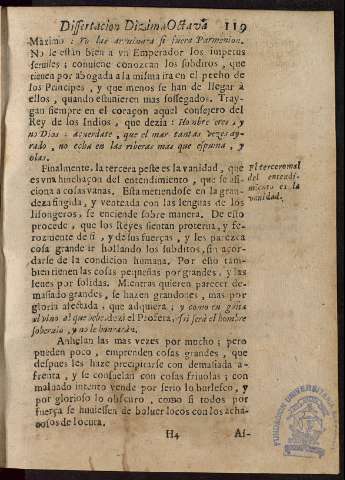 Dissertacion Dizima Octava 119
Maximo: Yo las arruinara si fuera Parmenion.
No le estàn bien a vn Emperador los impetus
seruiles; conuiene conozcan los subditos, que
tienen por abogada a la misma ira en el pecho de
los Principes, y que menos se han de llegar à
ellos, quando estuuieren mas sossegados. Tray-
gan siempre en el coraçon aquel consejero del
Rey de los Indios, que dezia: Hombre eres, y
no Dios: acuerdate, que el mar tantas vezes ay-
rado, no echa en las riberas mas que espuma, y
olas.
Finalmente, la tercera peste es la vanidad, que
es vna hinchaçon del entendimiento, que se afi-
ciona a cosas vanas. Esta metiendose en la gran-
deza fingida, y venteada con las lenguas de los
lisongeros, se enciende sobre manera. De esto
procede, que los Reyes sientan proterua, y fe-
rozmente de sì, y de sus fuerças, y les parezca
cosa grande ir hollando los subditos, sin acor-
darse de la condicion humana. Por esto tam-
bien tienen las cosas pequeñas por grandes, y las
leues por solidas. Mientras quieren parecer de-
masiado grandes, se hazen grandones, mas por
gloria afectada, que adquirera; y como en
al vino al que bebe, dezia el Profeta, assi serà el hombre
soberuio, y no le honraràn.
Anhelan las mas vezes por mucho; pero
pueden poco, emprenden cosas grandes, que
despues les haze precipitarse con demasiada a-
frenta, y se consuelan con cosas friuolas; con
maluado intento vende por serio lo burlesco, y
por glorioso lo obscuro, como si todos por
fuerça se huuiessen de boluer locos con los acha-
cosos de locura.
H4 As-
El tercero mal
del entendi-
miento es la
vanidad.